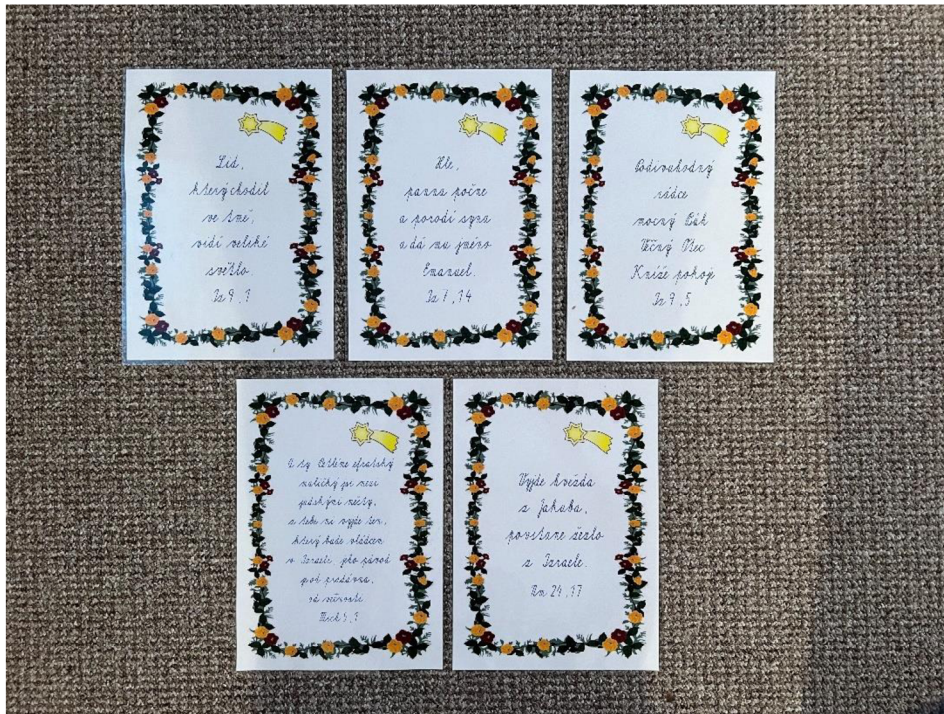 Lid,
který chodil
ve tmě,
vidí veliké
světlo.
Iz 9,1
Hle,
panna počne
a porodí syna
a dá mu jméno
Emanuel.
Iz 7,14
Podivuhodný
rádce
mocný Bůh
Věčný Otec
Kníže pokoje
Iz 9,5
A ty Betléme efratský
maličký jsi mezi
judskými městy,
z tebe mi vyjde ten,
který bude vládcem
v Izraeli, jeho původ
je od pradávna,
od věčnosti.
Mich 5,1
Vyjde hvězda
z Jakuba,
povstane žezlo
z Izraele.
Nm 24,17